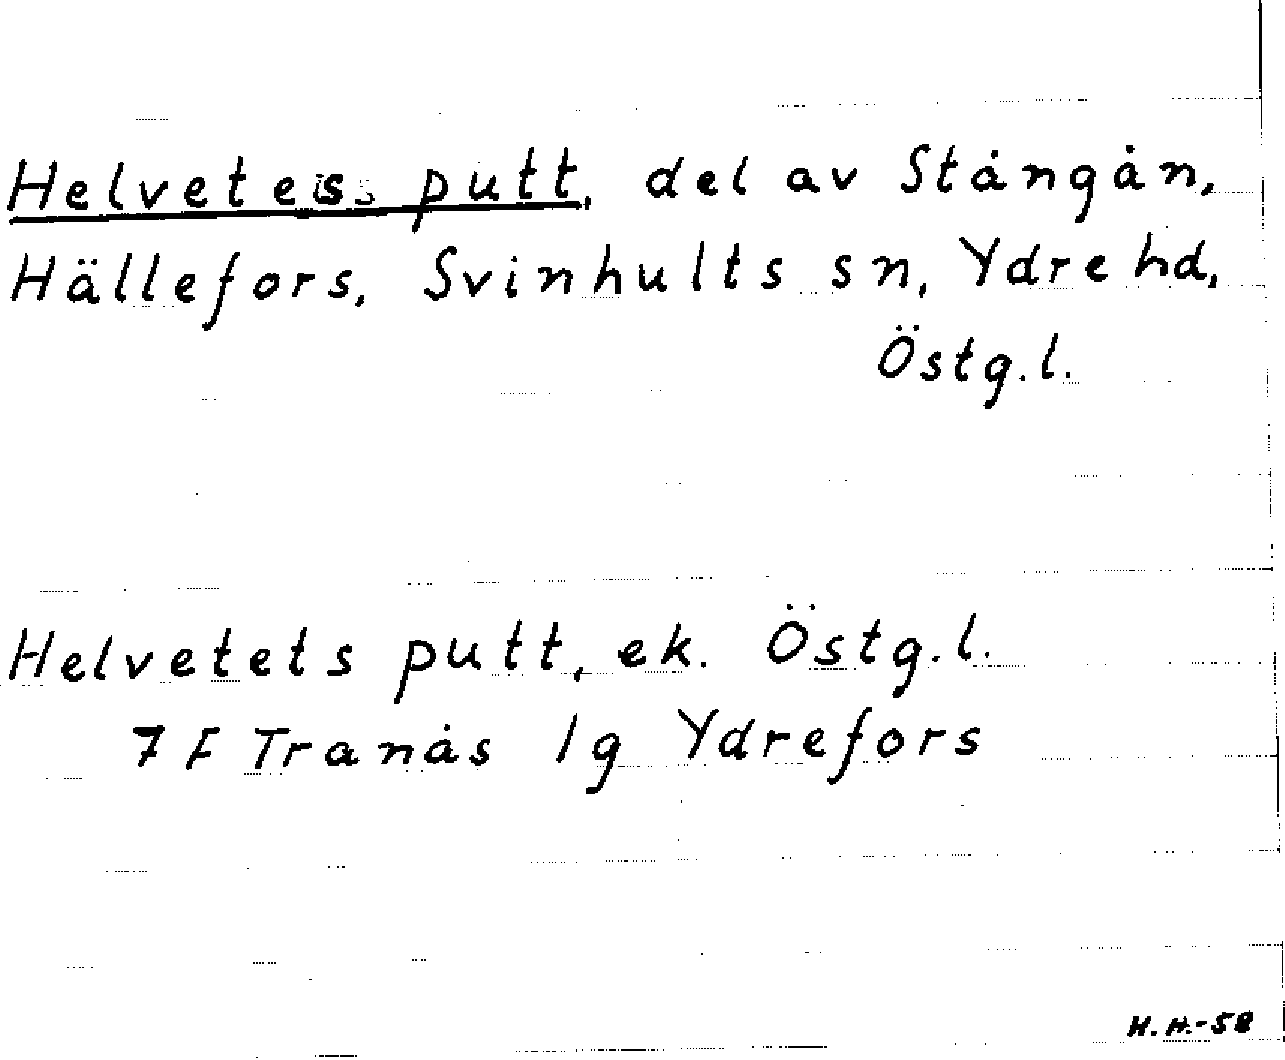 Helvetes putt, del av Stångån,
Hällefors, Svinhults sn, Ydre hd,
Östg.l.
Helvetets putt, ek. Östg.l.
7 F Tranås 1g Ydrefors
H.H.-58